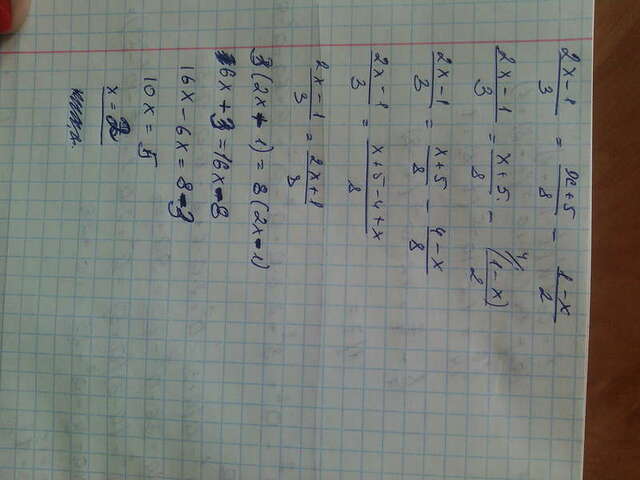 2x-1/3 = x+5/8 - 1-x/2
2x-1/3 = x+5/8 - 4/(1-x)/2
2x-1/3 = x+5/8 - 4-x/8
2x-1/3 = x+5-4+x/8
2x-1/3 = 2x+1/8
3(2x+1) = 8(2x-1)
6x+3=16x-8
16x-6x=8-3
10x=5
x=